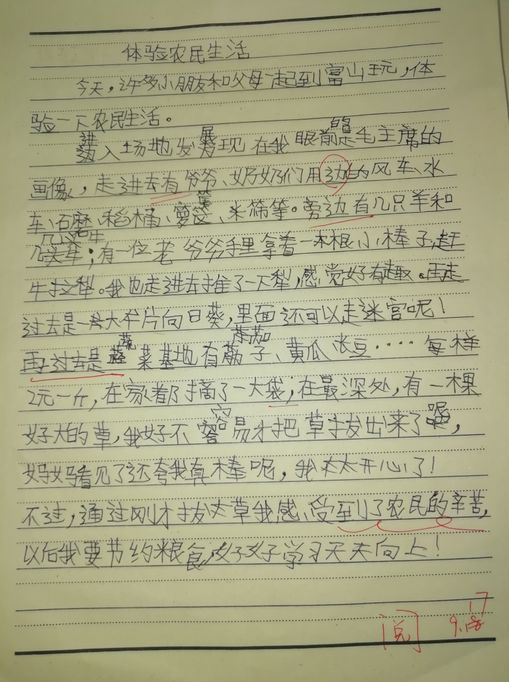 体验农民生活
今天，许多小朋友和父母一起到富山玩，体
验一下农民生活。
进入场地发展现在我眼前的是毛主席的
画像，走进去有爷爷、奶奶们用过的风车、水
车、石磨、稻桶、箩筐、米筛等。旁边有几只羊和
几头牛；有一位老爷爷手里拿着一根小棒子，赶
牛拉犁。我也走进去推了一下犁，感觉好有趣。再走
过去是一大片向日葵，里面还可以走迷宫呢！
再过去是蔬菜基地有茄子、黄瓜、长豆····每样
2元一斤，在家都摘了一大袋，在最深处，有一棵
好大的草，我好不容易才把草拔出来了，
妈妈看见了还夸我真棒呢，我太太开心了！
不过，通过刚才拔大草我感、受到了农民的辛苦，
以后我要节约粮食，好好学习天天向上！
阅
9.18